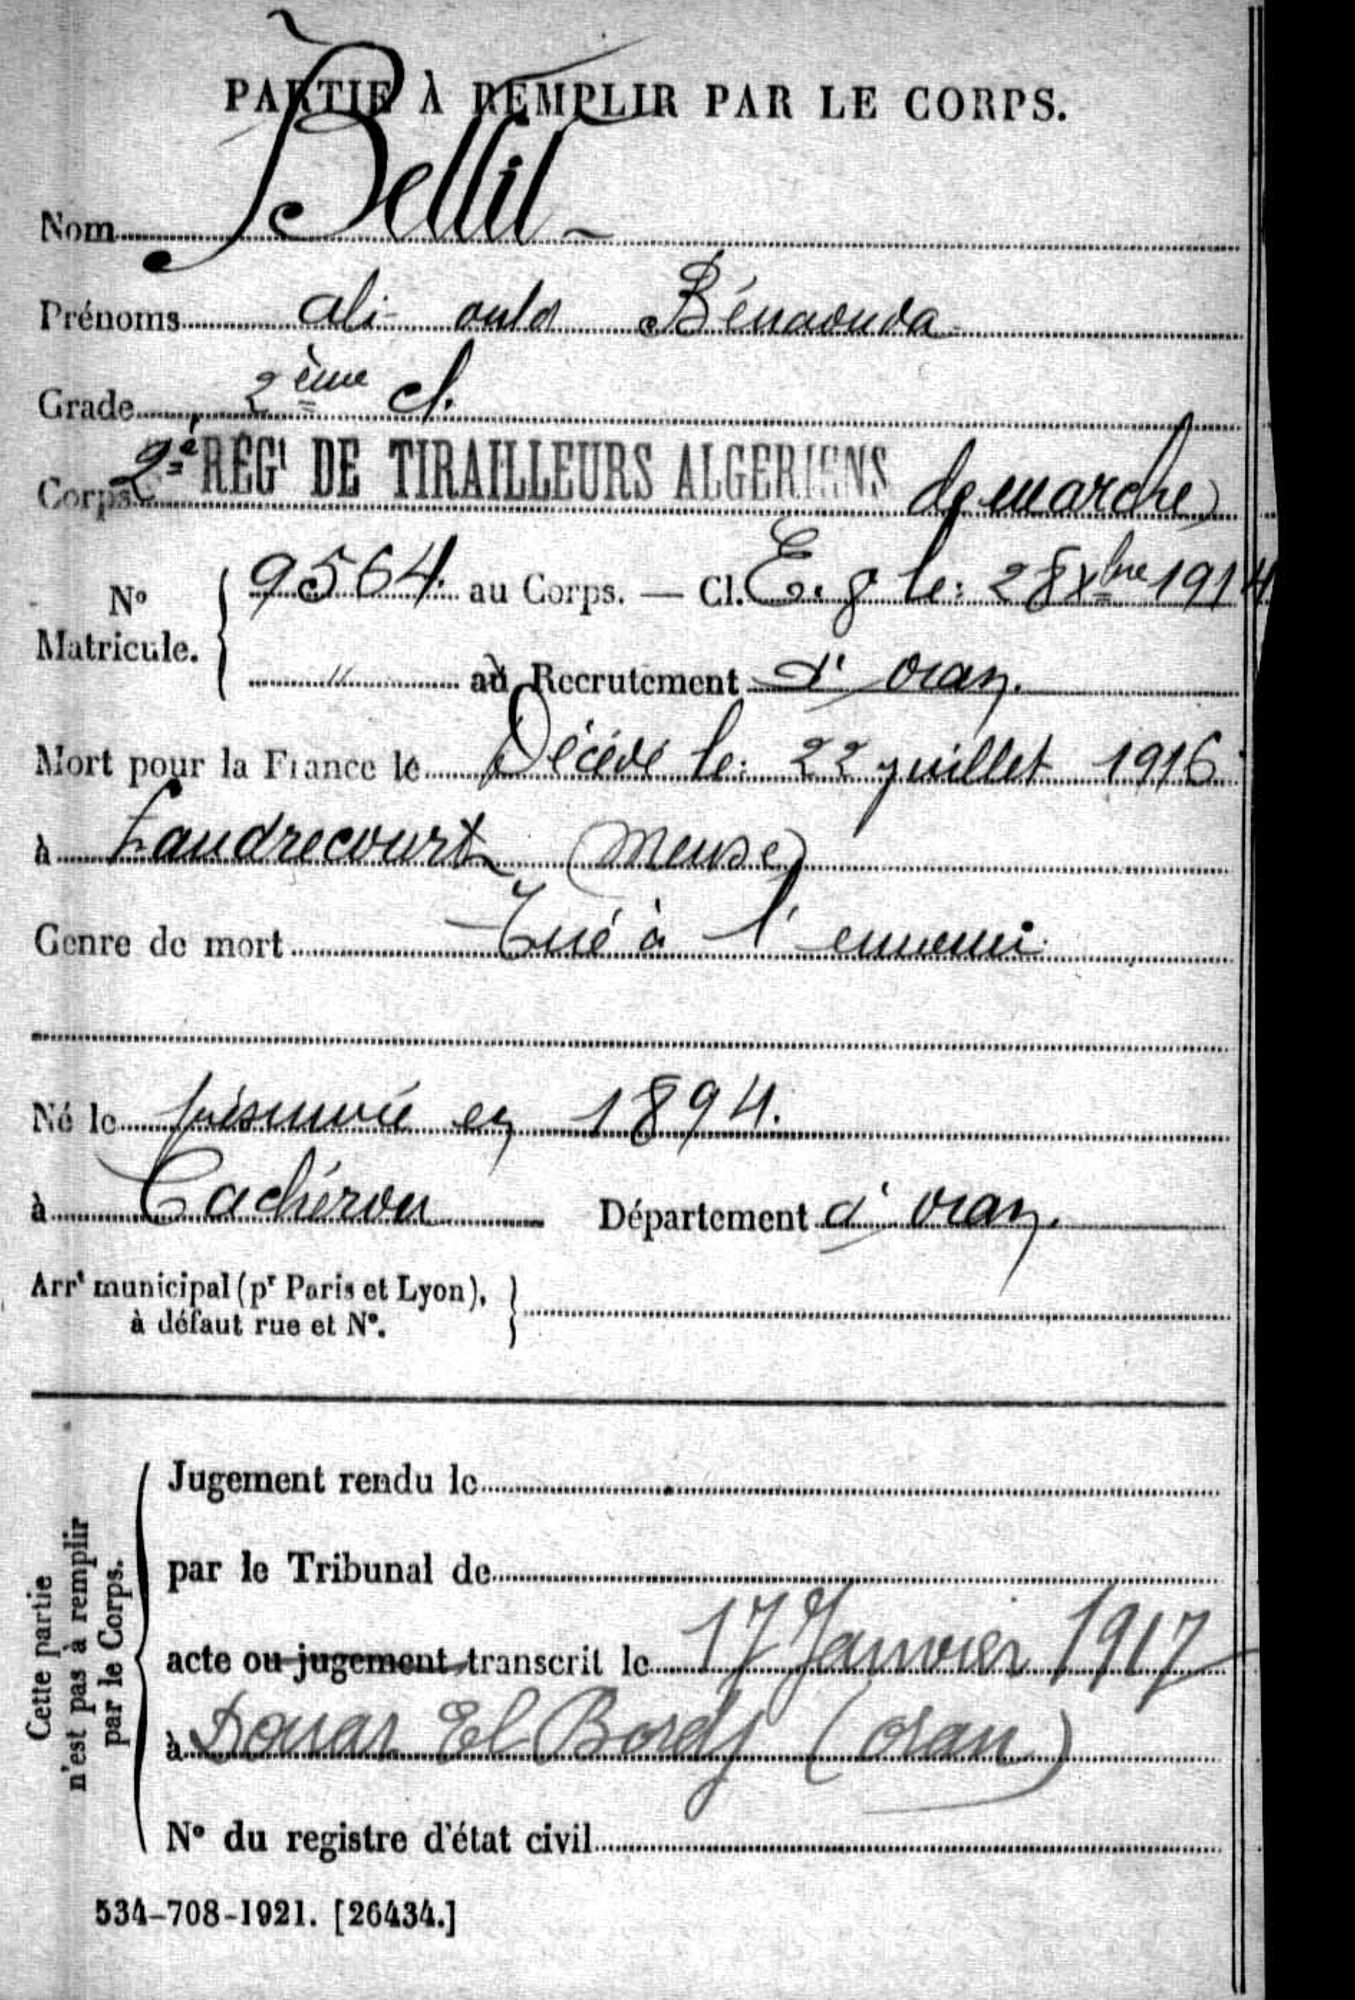 PARTIE À REMPLIR PAR LE CORPS.
Nom Bellil
Prénoms Ali ould Bénaouda
Grade 2ème cl.
Corps 2e RÉGt DE TIRAILLEURS ALGERIENS de marche
No Matricule. 9564. au Corps. — Cl. E. g le: 28 Xbre 1914
" au Recrutement d'Oran.
Mort pour la France le Décédé le: 22 juillet 1916
à Landrecourt (Meuse)
Genre de mort Tué à l'ennemi
Né le présumé en 1894.
à Cachérou Département d'Oran.
Arrt municipal (pr Paris et Lyon),
à défaut rue et No.
Cette partie
n'est pas à remplir
par le Corps.
Jugement rendu le
par le Tribunal de
acte ou jugement transcrit le 17 Janvier 1917
à Douar El Bordj (Oran)
No du registre d'état civil
534-708-1921. [26434.]